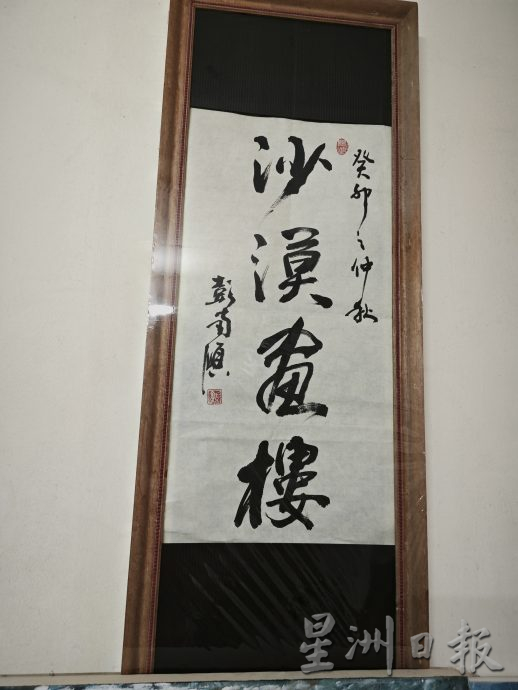 癸卯之仲秋
沙漠画樓
彭南
星洲日報